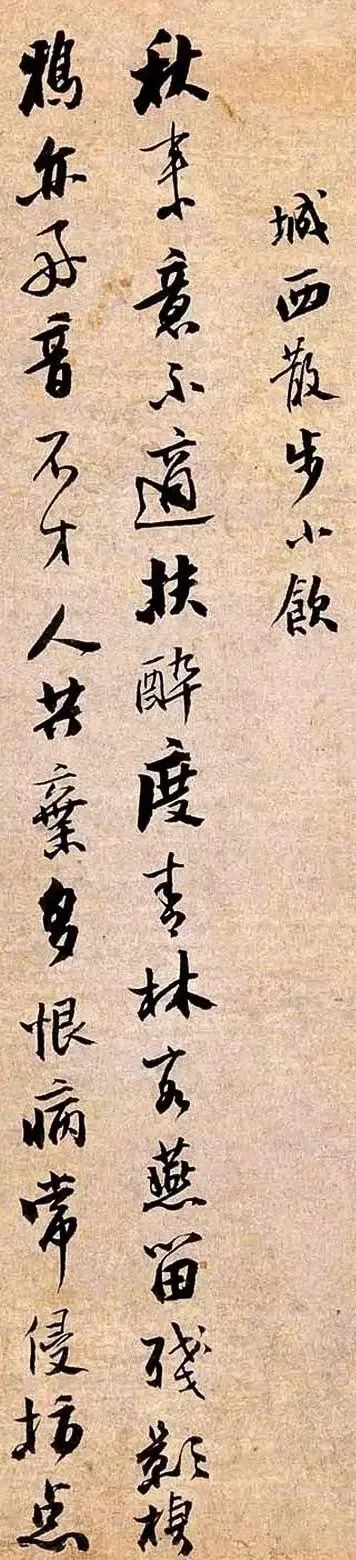 城西散步小飲
秋來意不適扶醉度青林客燕留殘影
鴉亦好音不才人共棄多恨病常侵指点